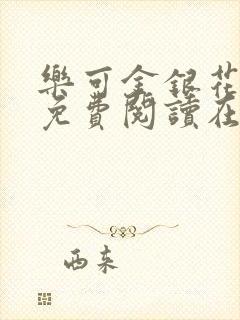 樂可金銀花
免費閱讀在
西束